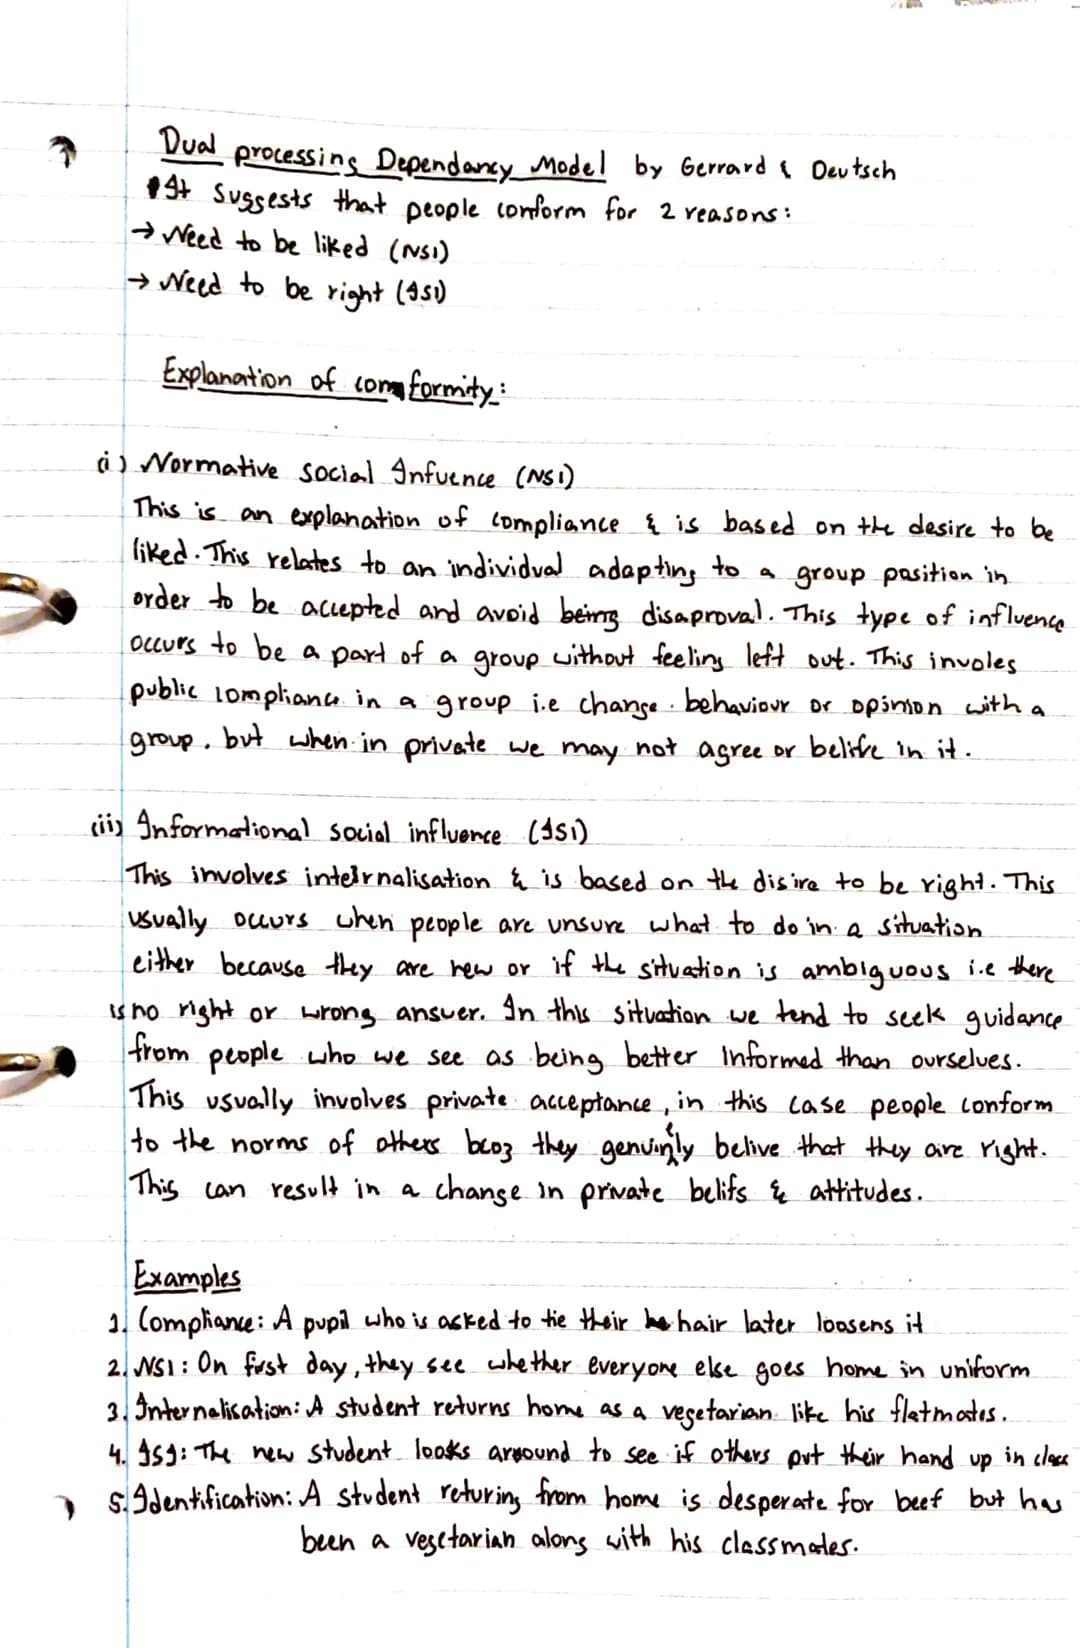 Dual processing Dependancy Model by Gerrard & Deutsch
It suggests that people conform for 2 reasons:
→ Need to be liked (NSI)
→ Need to be right (ISI)
Explanation of comformity:
(i) Normative social Infuence (NSI)
This is an explanation of compliance & is based on the desire to be
liked. This relates to an individual adapting to a group position in
order to be accepted and avoid being disaproval. This type of influence
occurs to be a part of a group without feeling left out. This involes
public compliance in a group i.e change behaviour or opinion with a
group, but when in private we may not agree or belive in it.
(ii) Informational social influence (ISI)
This involves internalisation & is based on the disire to be right. This
usually occurs when people are unsure what to do in a situation
either because they are new or if the situation is ambiguous i.e there
is no right or wrong answer. In this situation we tend to seek guidance
from people who we see as being better Informed than ourselves.
This usually involves private acceptance, in this case people conform
to the norms of others bcoz they genuinly belive that they are right.
This can result in a change in private belifs & attitudes.
Examples
1. Compliance: A pupil who is asked to tie their hair later loosens it
2. NSI: On first day, they see whether everyone else goes home in uniform
3. Internalisation: A student returns home as a vegetarian like his flatmates.
4. ISI: The new student looks around to see if others put their hand up in class
5. Identification: A student returing from home is desperate for beef but has
been a vegetarian along with his classmates.